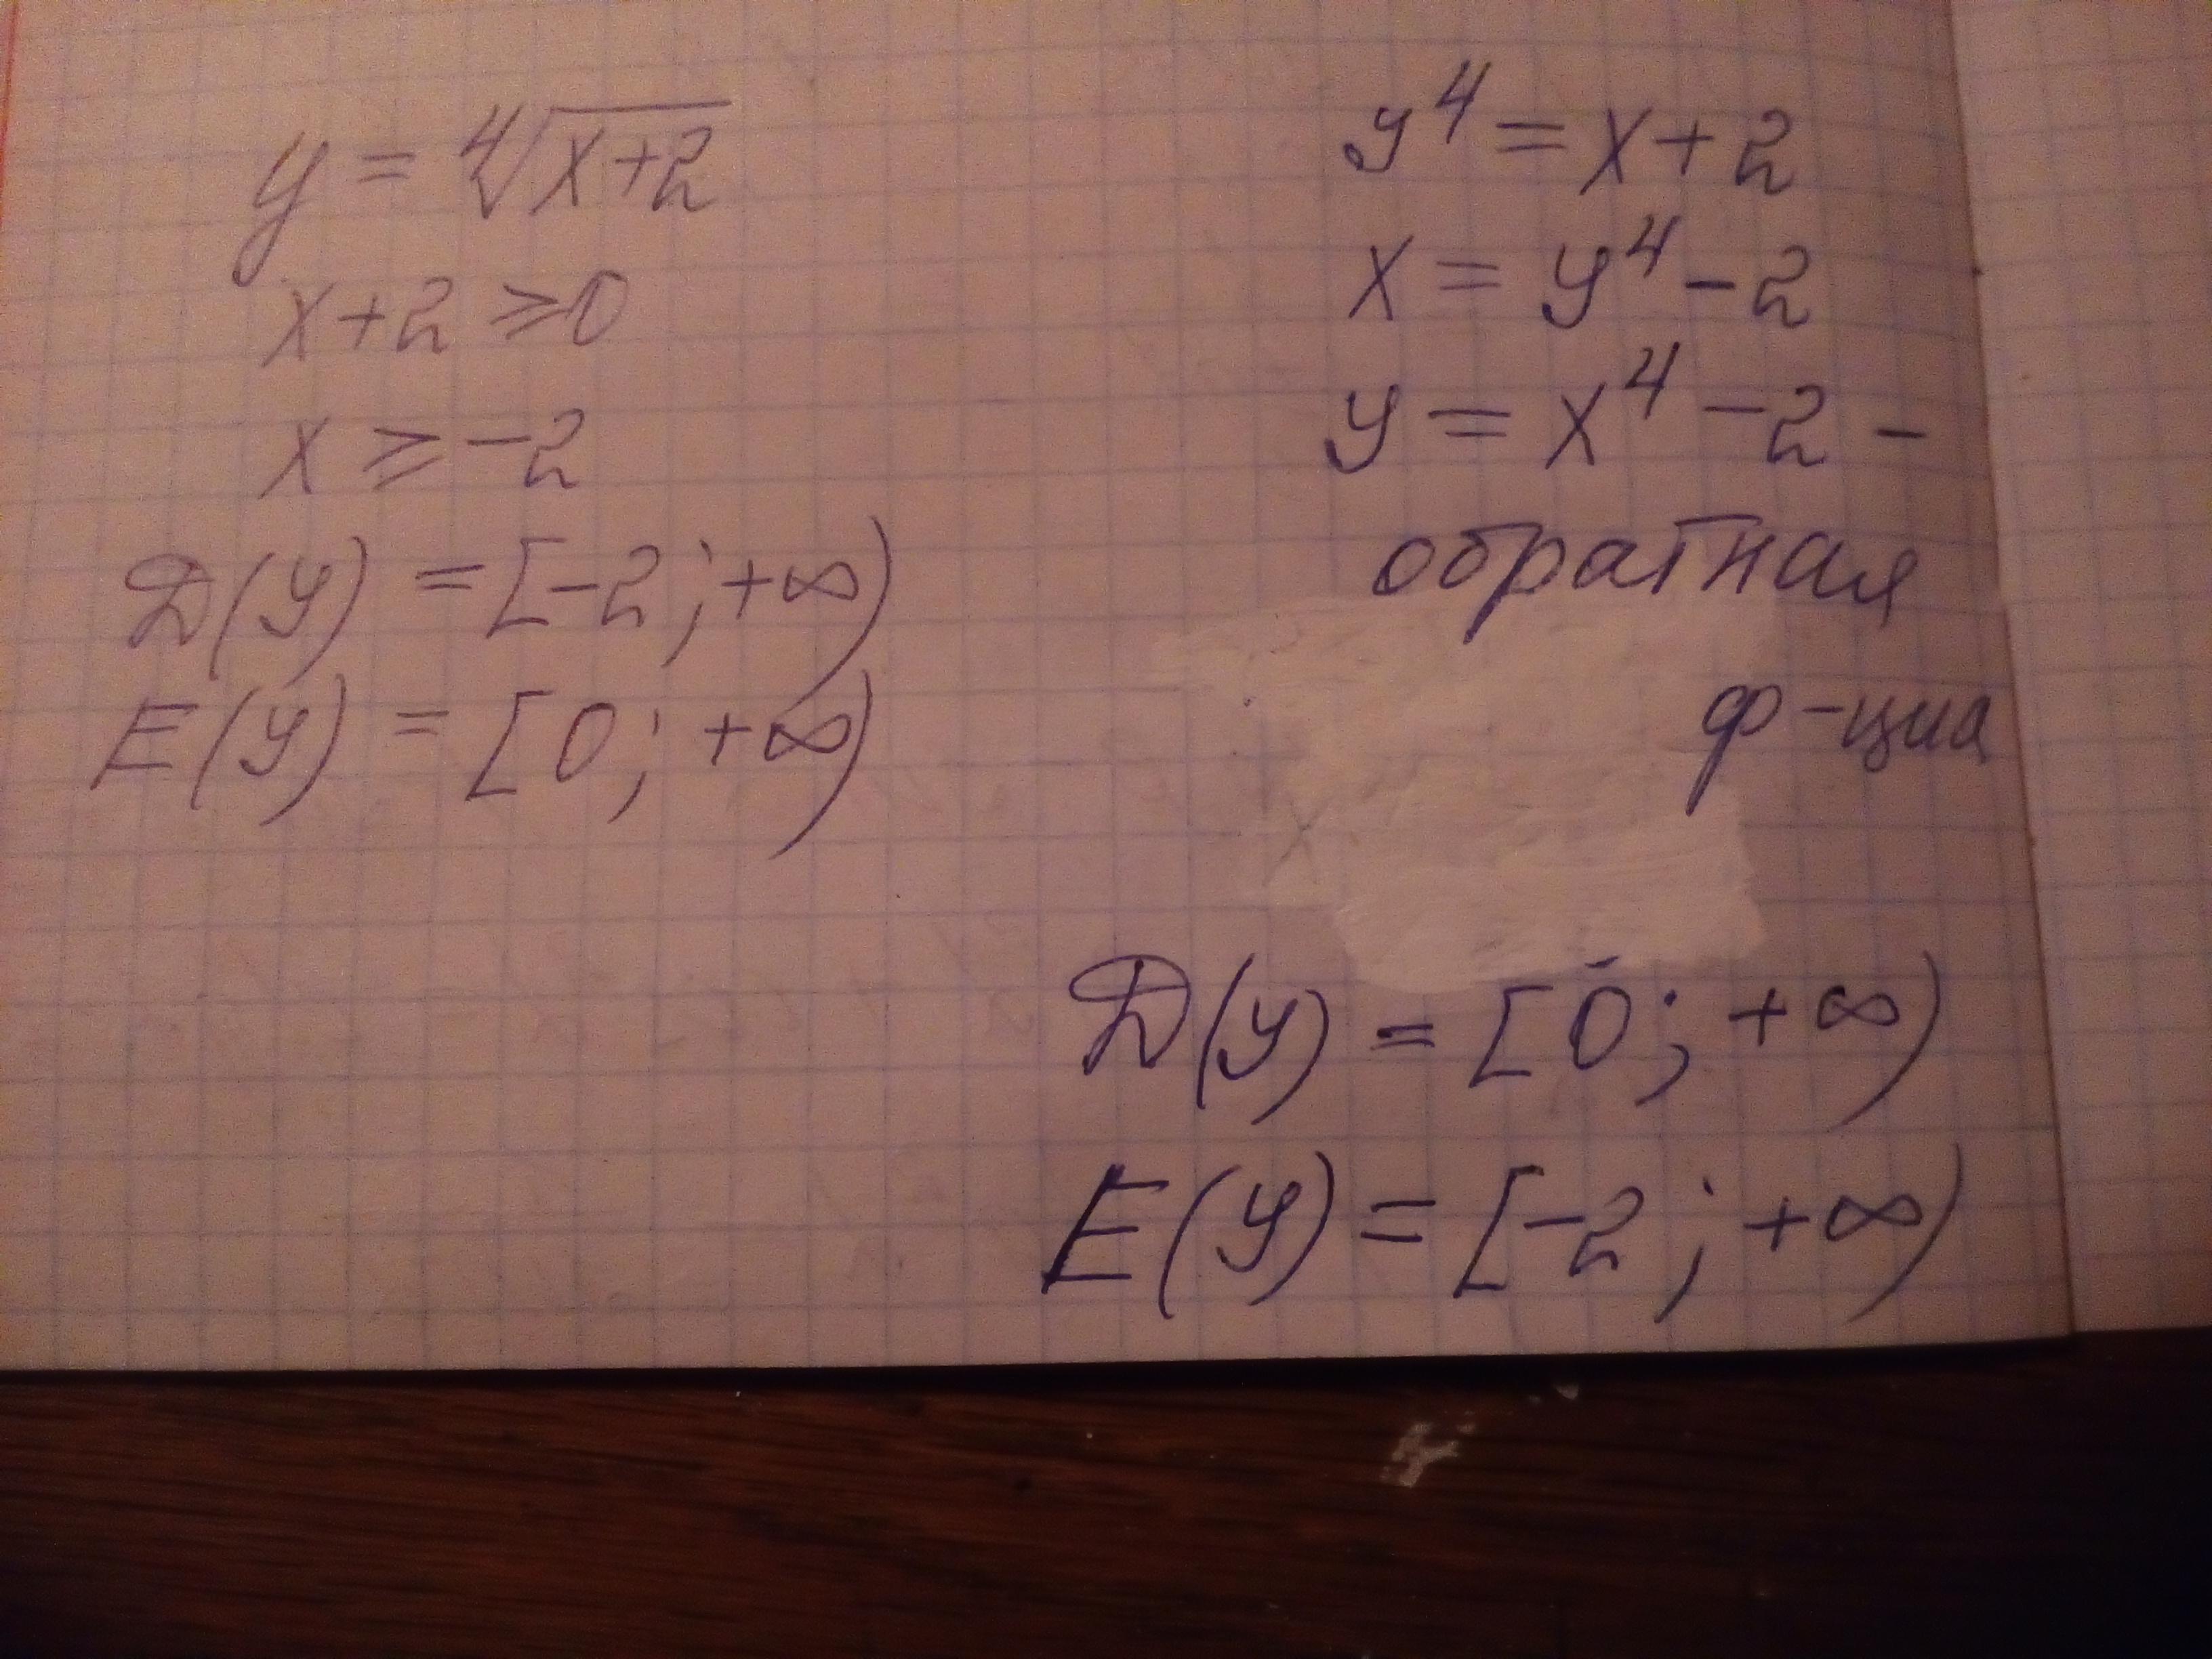 y = ⁴√(x+2)
x+2 ≥ 0
x ≥ -2
D(y) = [-2; +∞)
E(y) = [0; +∞)
y⁴ = x+2
x = y⁴ - 2
y = x⁴ - 2 -
обратная
ф-циа
D(y) = [0; +∞)
E(y) = [-2; +∞)